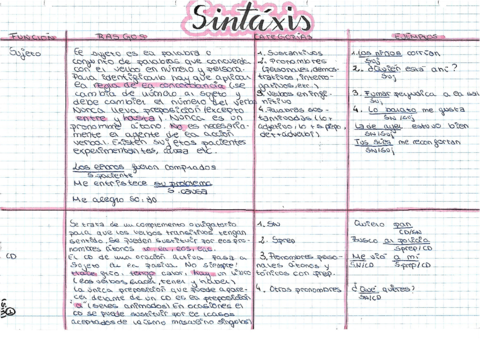 Sintáxis
FUNCIÓN RASGOS CATEGORÍAS EJEMPLOS
Sujeto
El sujeto es la palabra o
conjunto de palabras que concuerda
con el verbo en número y persona.
Para identificarlo hay que aplicar
la regla de la concordancia (se
cambia de número al sujeto y
debe cambiar el número del verbo)
Nunca lleva preposición (excepto
entre y hasta). Nunca es un
pronombre átono. No es necesaria-
mente el agente de la acción
verbal. Existen sujetos pacientes
experimentantes, causa etc.
Los libros fueron comprados
S. paciente
Me entristece su problema
S. causa
Me alegro
1. Sustantivos
2. Pronombres
(personales, demos
trativos, interro-
gativos, etc.)
3. Verbos en infi-
nitivo
4. Palabras sus-
tantivadas (lo +
adjetivo, lo + s prep,
det + adverbi)
1. Los niños corrían
Suj
2. ¿Quién está ahí?
Suj
3. Fumar perjudica a la salud
Suj
4. Lo barato me gusta
Suj
La de ayer estuvo bien
Suj
Tus síes me reconfortan
Suj
CD
Se trata de un complemento obligatorio
para que los verbos transitivos tengan
sentido. Se pueden sustituir por los pro-
nombres átonos lo, la, los, las.
El CD de una oración activa pasa a
Sujeto en la pasiva. No siempre
hace frío, tengo calor, hay un libro
(los verbos hacer, tener y haber)
La única preposición que puede apare-
cer delante de un CD es la preposición
a (seres animados) En ocasiones el
CD se puede sustituir por le (casos
aceptados de leísmo masculino singular)
1. SN
2. Sprep
3. Pronombres perso-
nales átonos y
tónicos con prep
4. Otros pronombres
Quiero pan
CD/SN
Busco a Patricia
Sprep/CD
Me vio a mí
SN/CD Sprep/CD
¿Qué quieres?
SN/CD